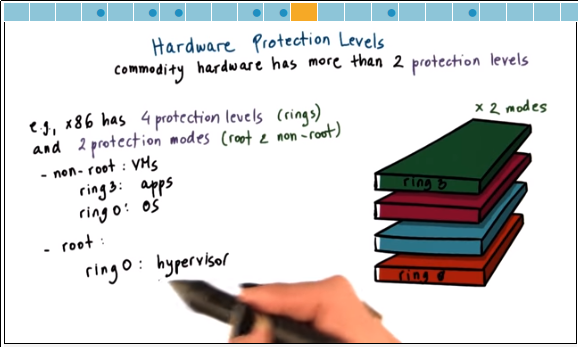 Hardware Protection Levels
commodity hardware has more than 2 protection levels
e.g., x86 has 4 protection levels (rings)
and 2 protection modes (root & non-root)
- non-root : VMs
ring 3: apps
ring 0: OS
- root :
ring 0: hypervisor
x 2 modes
ring 3
ring 0